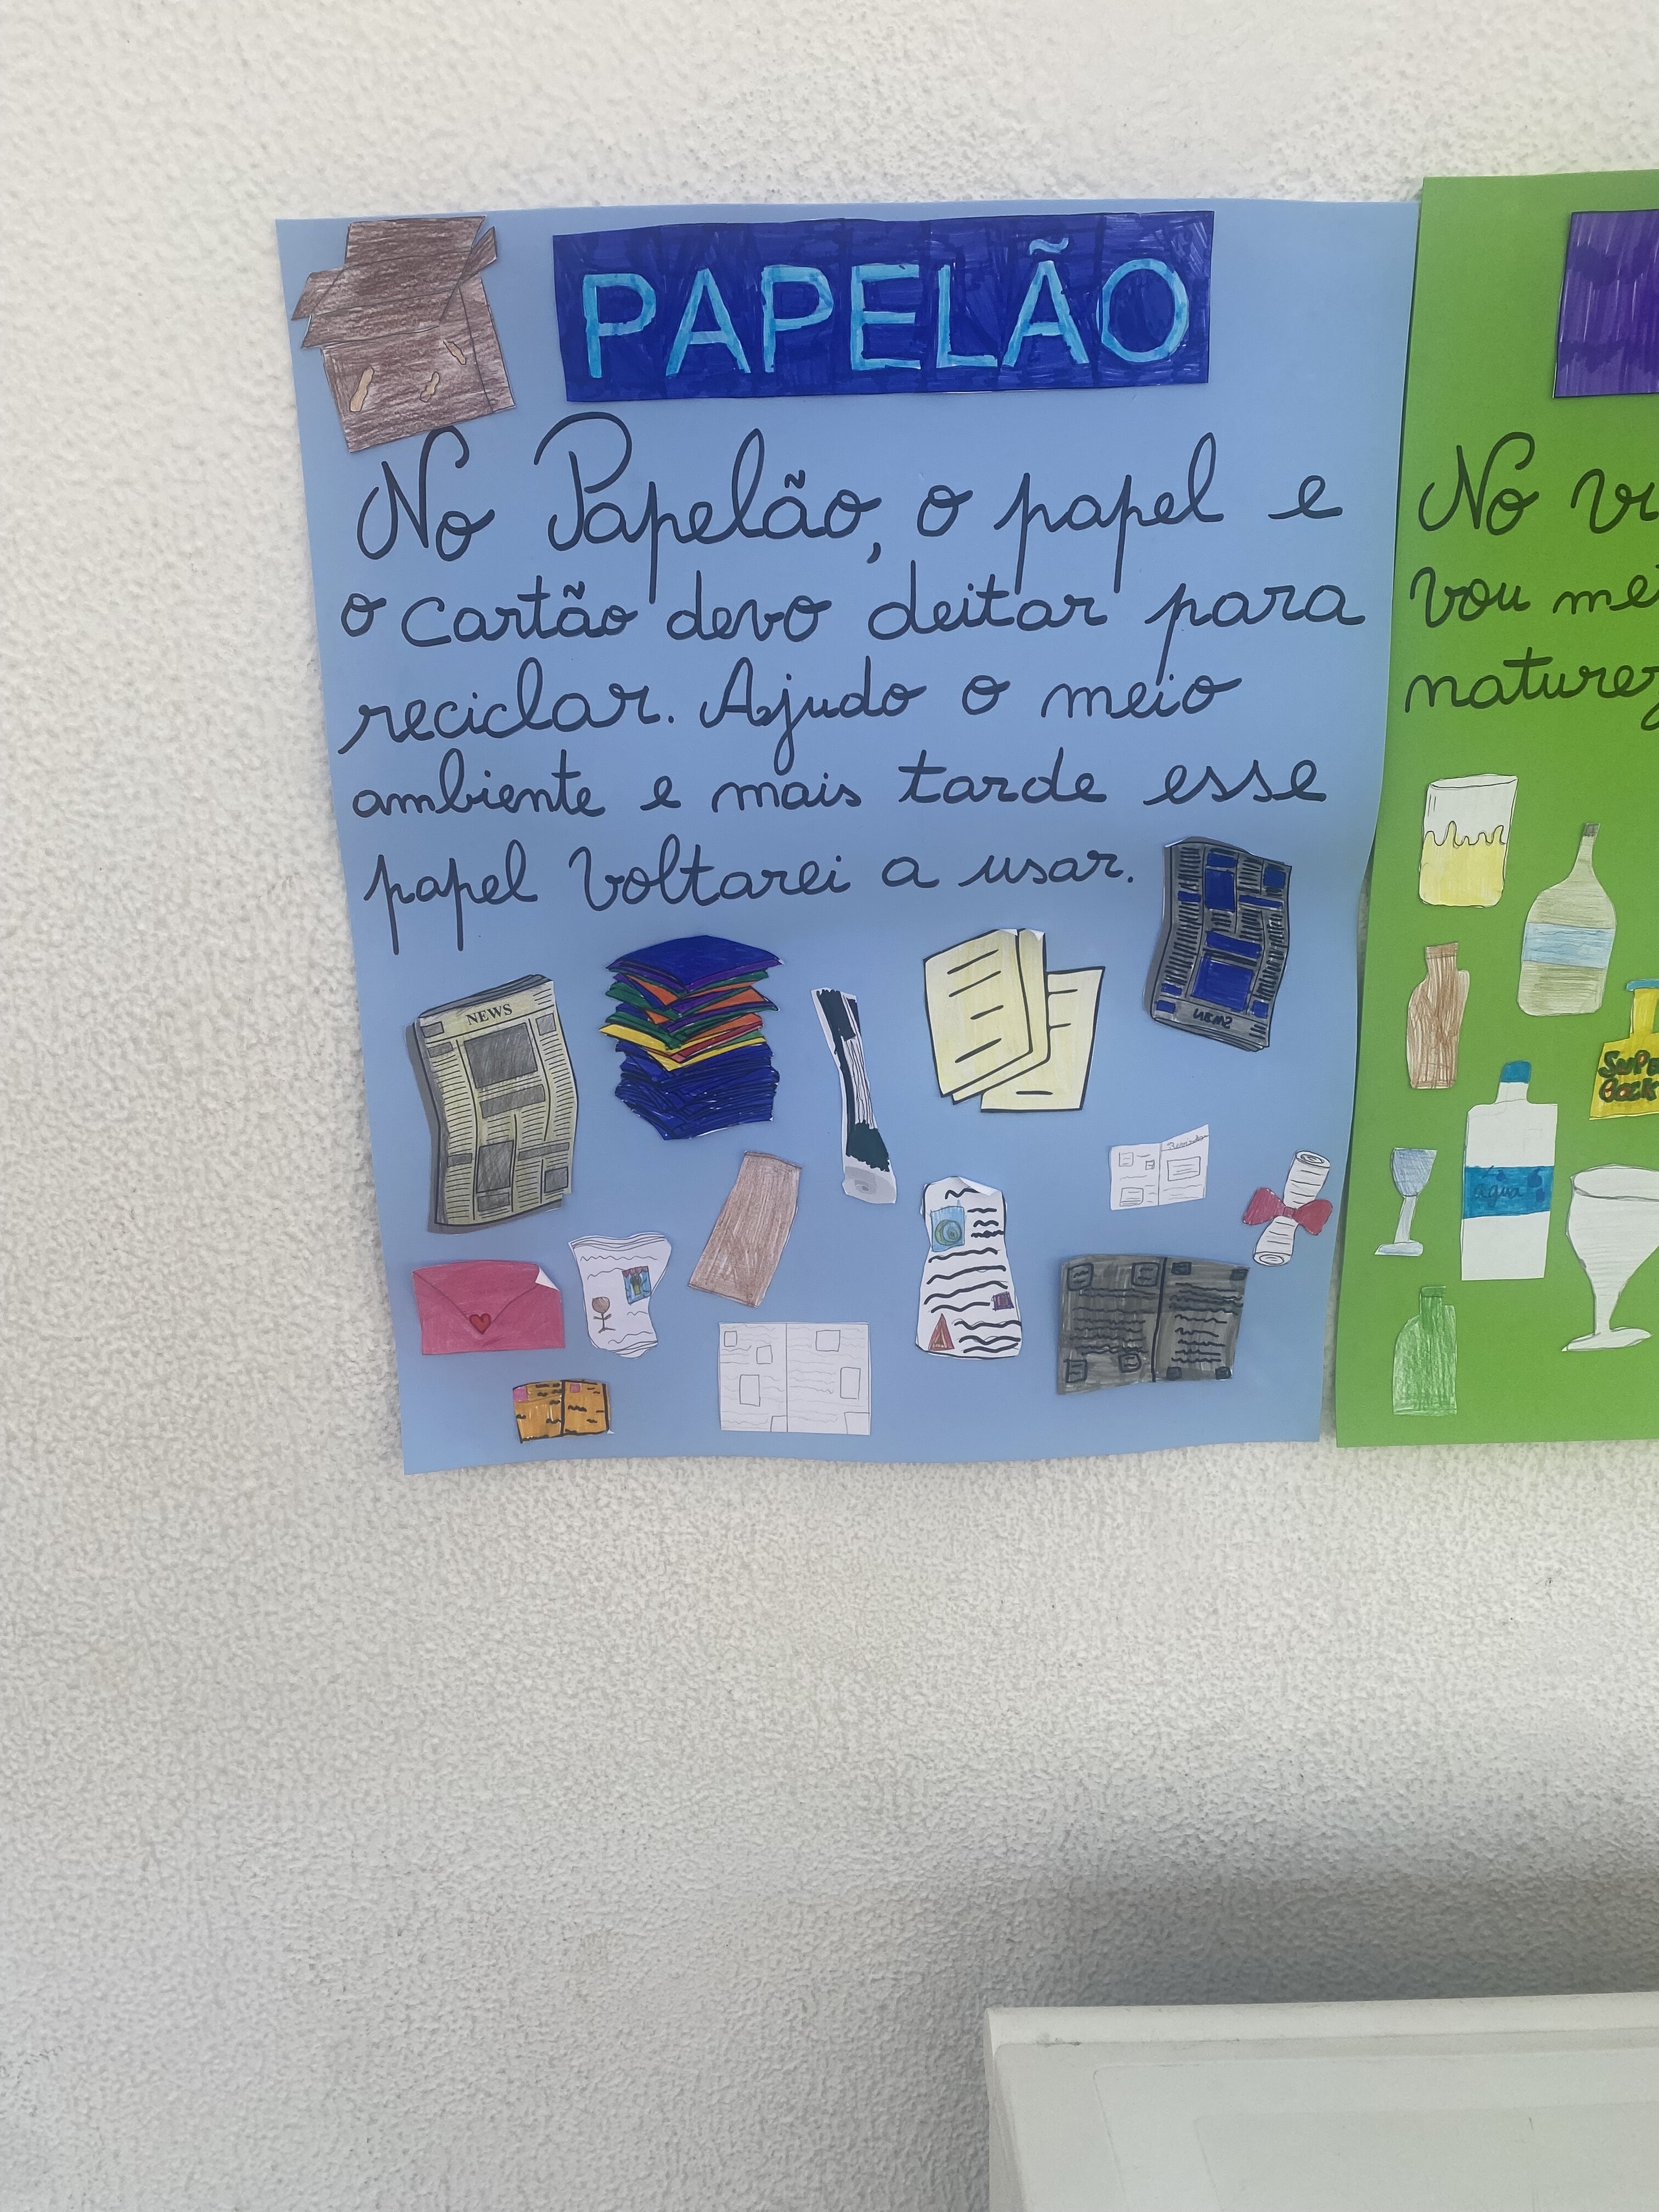 PAPELÃO
No Papelão, o papel e
o cartão devo deitar para
reciclar. Ajudo o meio
ambiente e mais tarde esse
papel voltarei a usar.
NEWS
NEWS
No
vou
água